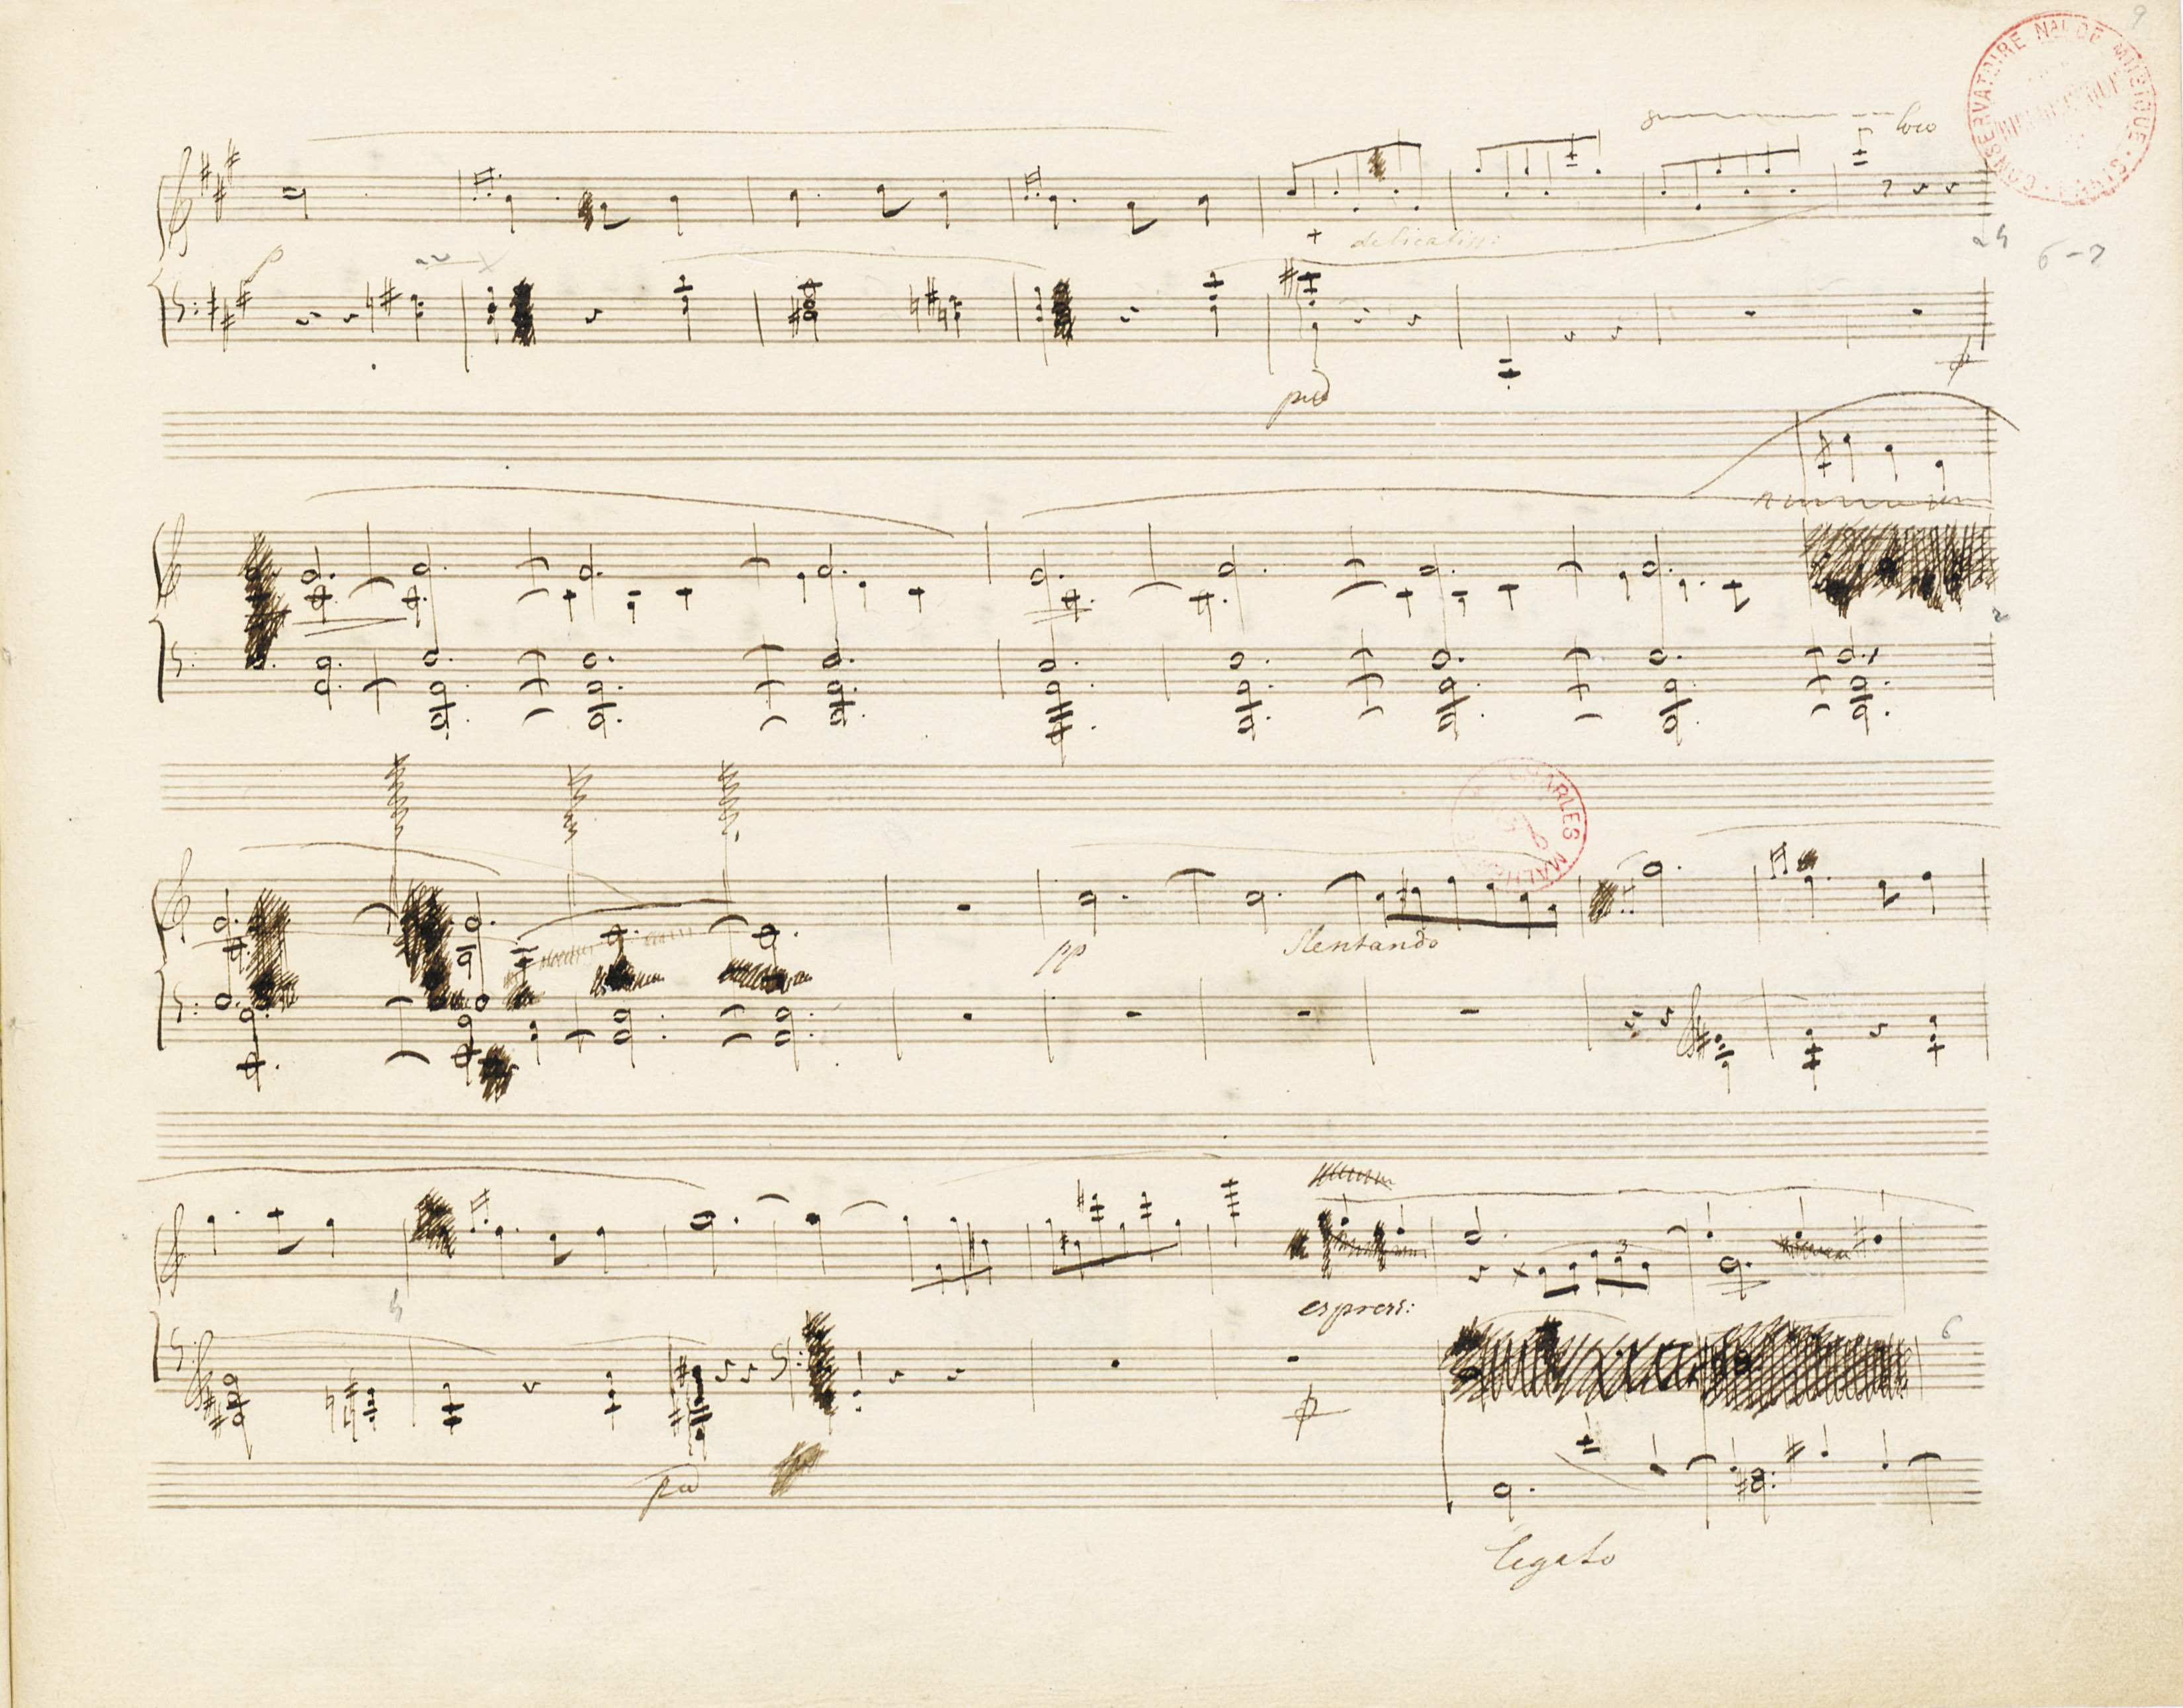 9
CONSERVATOIRE NAL DE MUSIQUE
8 loco
p
delicatiss:
24
6-7
ped
2
CHARLES MALHERBE
pp
slentando
espress:
6
ped
3
legato